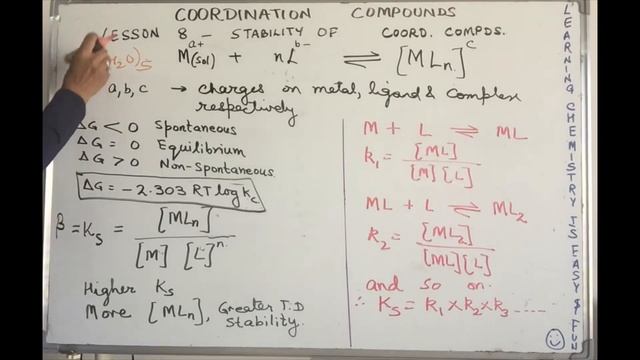 COORDINATION COMPOUNDS
LESSON 8 – STABILITY OF COORD. COMPDS.
M(sol)ᵃ⁺ + nLᵇ⁻ ⇌ [MLn]ᶜ
a, b, c → charges on metal, ligand & complex
respectively
ΔG < 0 Spontaneous
ΔG = 0 Equilibrium
ΔG > 0 Non-Spontaneous
ΔG = – 2.303 RT log Kc
β = Ks = [MLn] / [M] [L]ⁿ
Higher Ks
More [MLn], Greater T.D
Stability.
M + L ⇌ ML
k₁ = [ML] / [M] [L]
ML + L ⇌ ML₂
k₂ = [ML₂] / [ML][L]
and so on.
∴ Ks = k₁ × k₂ × k₃ .....
LEARNING CHEMISTRY IS EASY & FUN